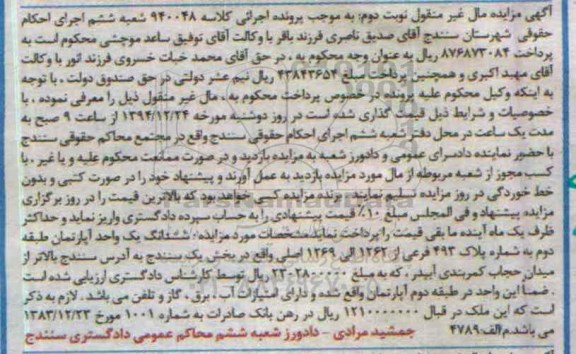 آگهی مزایده مال غیر منقول نوبت دوم: به موجب پرونده اجرائی کلاسه ۹۴۰۰۴۸ شعبه ششم اجرای احکام
حقوقی شهرستان سنندج آقای صدیق ناصری فرزند باقر با وکالت آقای توفیق ساعد موچشی محکوم است به
پرداخت ۸۷۶۸۷۳۰۸۴ ریال به عنوان وجه محکوم به ، در حق آقای محمد خیات خسروی فرزند انور با وکالت
آقای مهبد اکبری و همچنین پرداخت مبلغ ۴۳۸۴۳۶۵۴ ریال نیم عشر دولتی در حق صندوق دولت ، با توجه
به اینکه وکیل محکوم علیه پرونده در خصوص پرداخت محکوم به ، مال غیر منقول ذیل را معرفی نموده ، با
خصوصیات و شرایط ذیل قیمت گذاری شده است در روز دوشنبه مورخه ۱۳۹۴/۱۲/۲۴ از ساعت ۹ صبح به
مدت یک ساعت در محل دفتر شعبه ششم اجرای احکام حقوقی سنندج واقع در مجتمع محاکم حقوقی سنندج
با حضور نماینده دادسرای عمومی و دادورز شعبه به مزایده بازدید و در صورت ممانعت محکوم علیه و یا غیر ، با
کسب مجوز از شعبه مربوطه از مال مورد مزایده بازدید به عمل آورند و پیشنهاد خود را در صورت کتبی و بدون
خط خوردگی در روز مزایده تسلیم نمایند . برنده مزایده کسی خواهد بود که بالاترین قیمت را در روز برگزاری
مزایده پیشنهاد و فی المجلس مبلغ ۱۰٪ قیمت پیشنهادی را به حساب سپرده دادگستری واریز نماید و حداکثر
ظرف یک ماه آینده ما بقی قیمت را پرداخت نماید. مشخصات مورد مزایده: ششدانگ یک واحد آپارتمان طبقه
دوم به شماره پلاک ۴۹۳ فرعی از ۱۲۶۲ الی ۱۲۶۹ اصلی واقع در بخش یک سنندج به آدرس سنندج بالاتر از
میدان حجاب کمربندی آبیدر ، که به مبلغ ۲۳۰۲۸۰۰۰۰۰ ریال توسط کارشناس دادگستری ارزیابی شده است
. ضمنا این واحد در طبقه دوم آپارتمان واقع شده و دارای امتیازات آب ، برق ، گاز و تلفن می باشد . لازم به ذکر
است که این ملک در قبال ۱۲۱۰۰۰۰۰۰۰ ریال در رهن بانک صادرات به شماره ۱۰۰۱ مورخ ۱۳۸۳/۱۲/۲۳
می باشد.م/الف:۴۷۸۹ جمشید مرادی - دادورز شعبه ششم محاکم عمومی دادگستری سنندج